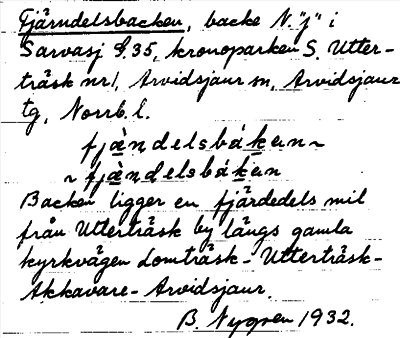 Fjärndelsbacken, backe N. "j" i
Sarvasj S.35, kronoparken S. Utter-
träsk nr1, Arvidsjaur sn, Arvidsjaur
tg, Norrb. l.
fjæ̀ndelsbákan ~
~ fjæ̀ndelsbákan
Backen ligger en fjärdedels mil
från Utterträsk by längs gamla
kyrkvägen Lomträsk - Utterträsk -
Akkavare - Arvidsjaur.
B. Nygren 1932.